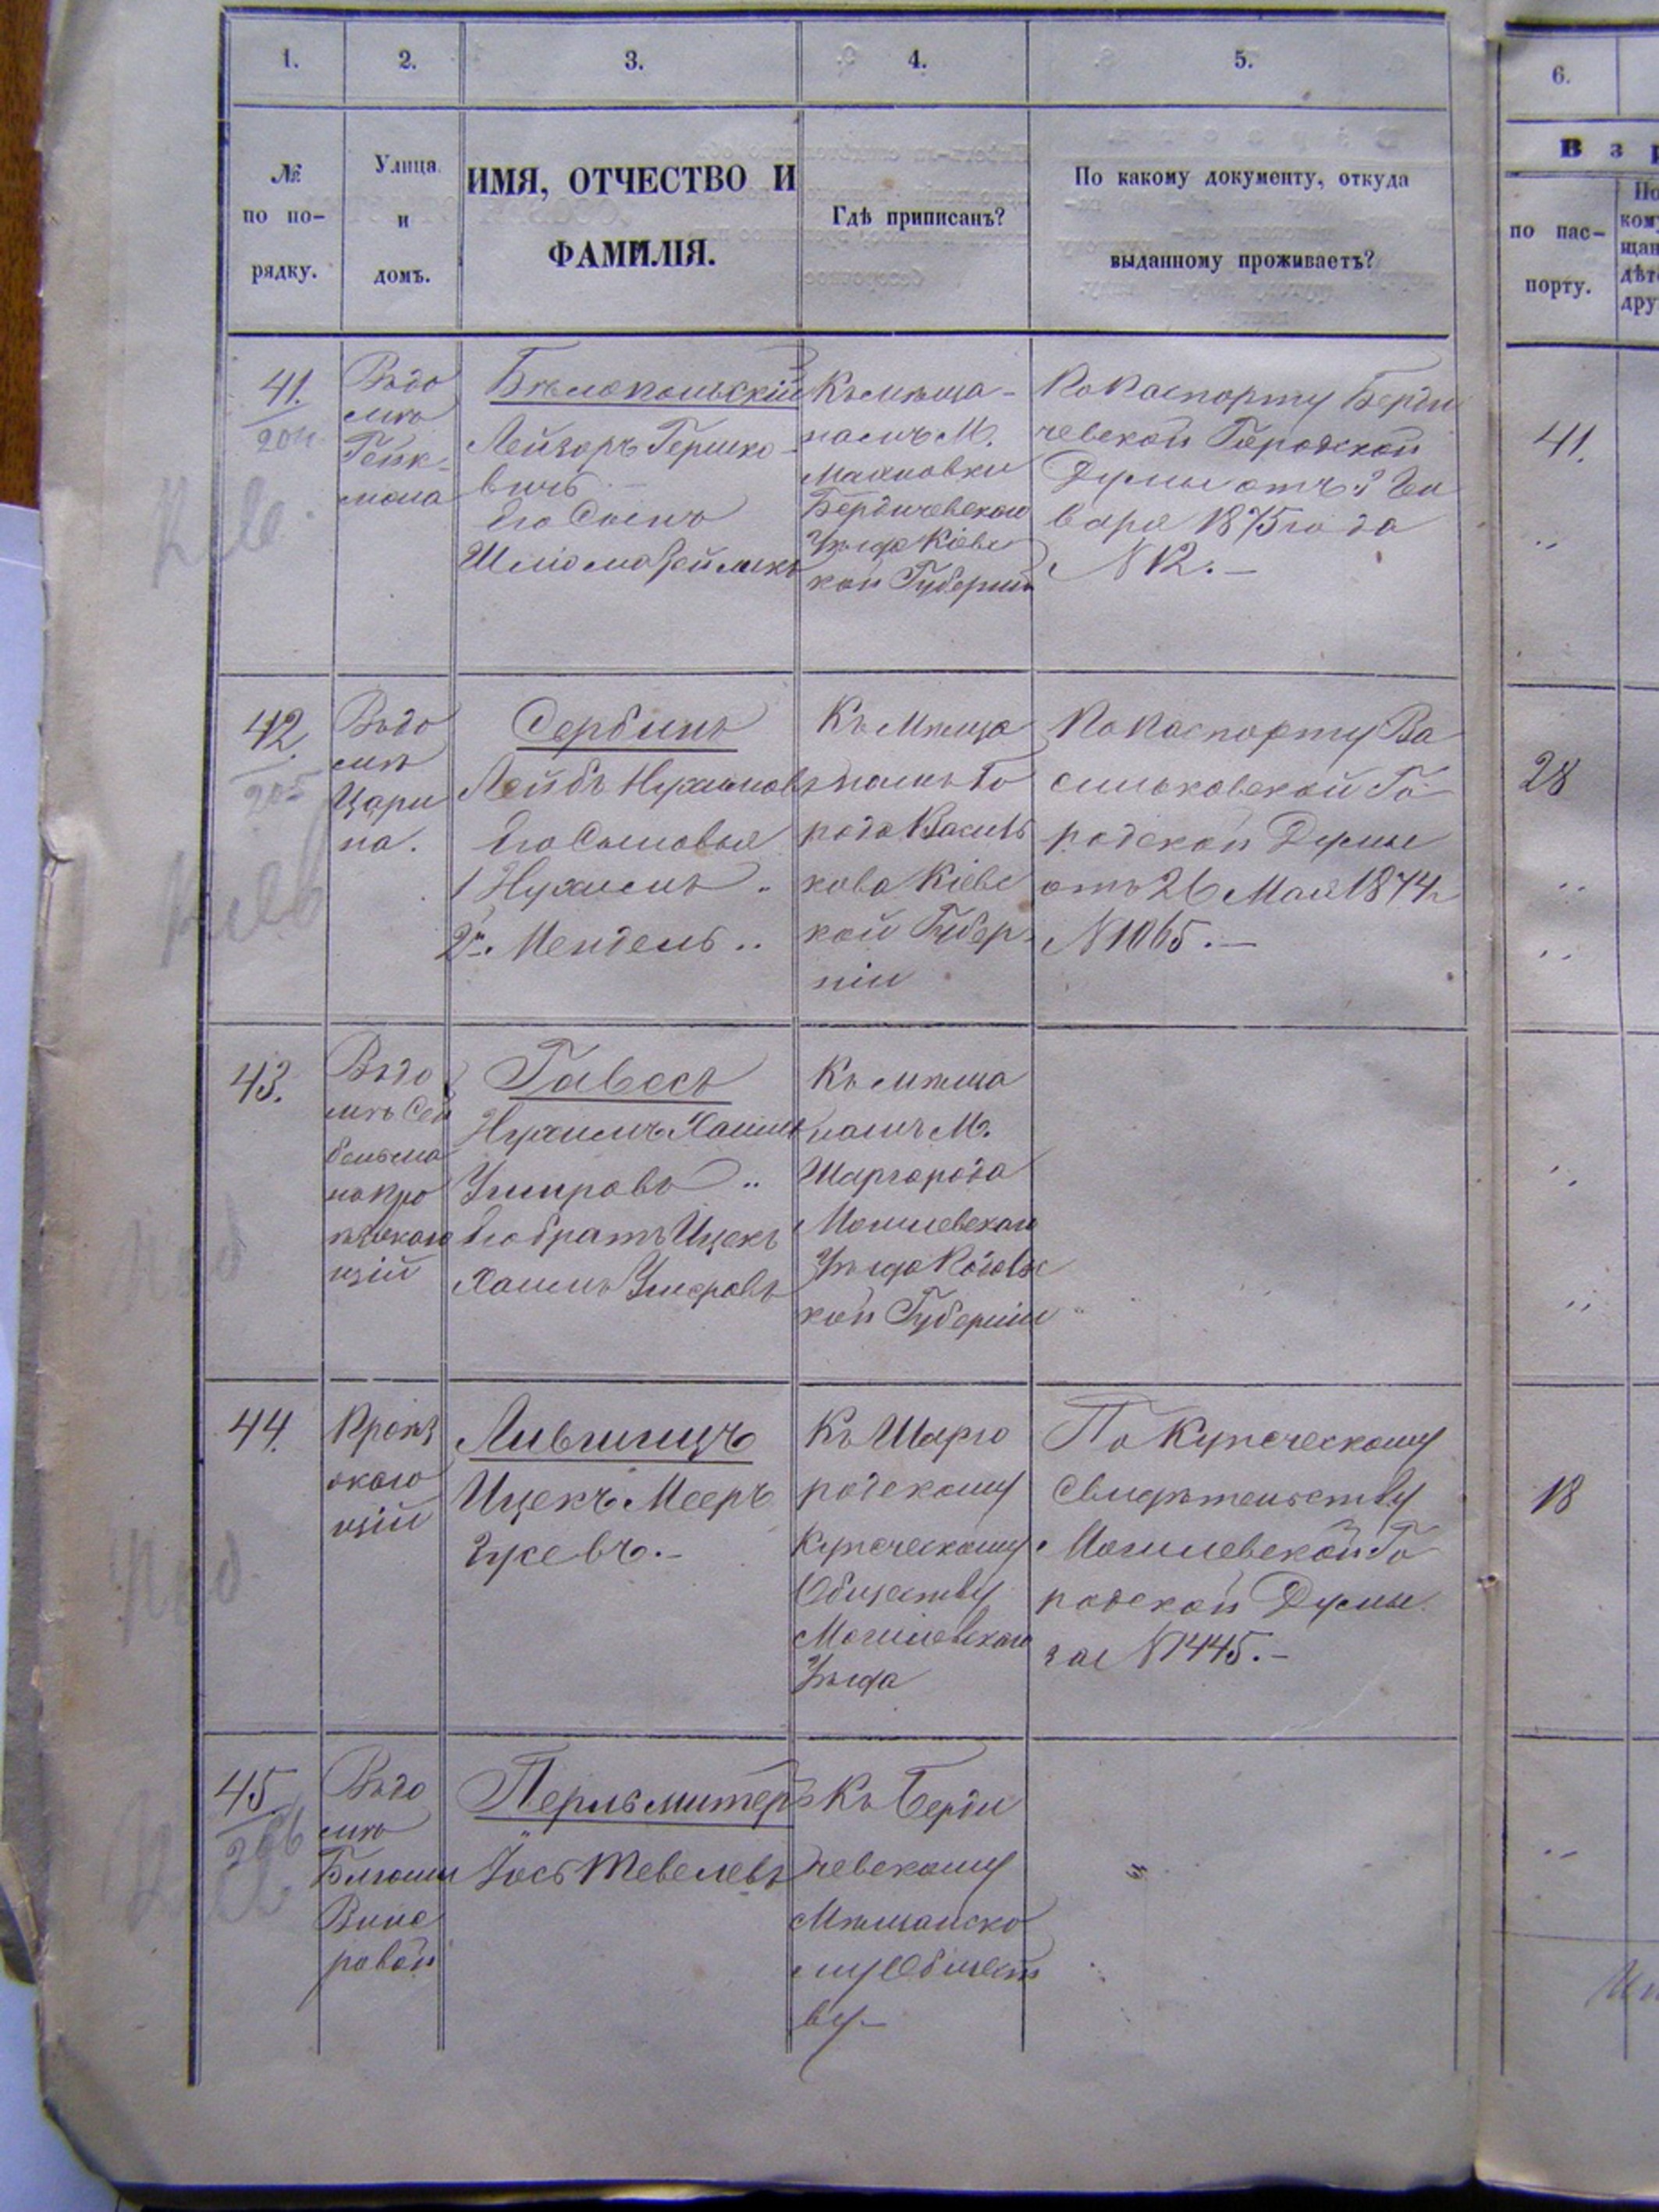 1.
2.
3.
4.
5.
6.
№
по по-
рядку.
Улица
и
домъ.
ИМЯ, ОТЧЕСТВО И
ФАМИЛІЯ.
Гдѣ приписанъ?
По какому документу, откуда
выданному проживаетъ?
Взр
по пас-
порту.
По
кому
щан
дѣт
дру
41.
204
Въ до
мѣ
Бѣлопольскій
Лейзоръ Гершко-
вичъ
Его Сынъ
Къ мѣща-
намъ М.
Махновки
Бердичевскаго
Уѣзда Кіевс
кой Губерніи
По Паспорту Берди
чевской Городской
Думы отъ 3 Ген
варя 1875 года
N 12.
41.
42.
205
Въ до
мѣ
Цари
на.
Сербинъ
Лейбъ Нухимовъ
Его Сыновья
1 Нухимъ
2й. Мендель
Къ Мѣща
намъ Го
рода Василь
кова Кіевс
кой Губер
ніи
По Паспорту Ва
сильковской Го-
родской Думы
отъ 26 Мая 1874 г
N 1065.
28
43.
Въ до
мѣ
Гавесъ
Нухимъ Хаимъ
Умеровъ
Его братъ Ицекъ
Хаимъ Умеровъ
Къ мѣща
намъ М.
Шаргорода
Могилевскаго
Уѣзда
кой Губерніи
44.
Лившицъ
Ицекъ Мееръ
Къ Шарго
родскому
Купеческому
Обществу
Могилевскаго
Уѣзда
По Купеческому
Свидѣтельству
Могилевской Го
родской Думы
за N 1445.
18
45.
266
Въ до
мѣ
Блюмы
Вине
ровой
Перльмитеръ
Іось Тевелевъ
Къ Берди
чевскому
Мѣщанско
му Общест
ву